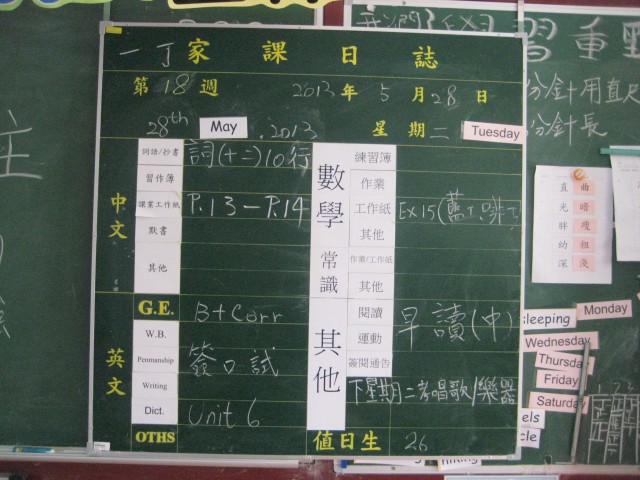 一丁家課日誌
第18週 2013年5月28日
28th May .2013 星期二 Tuesday
中文
詞語/抄書 詞(十二)10行
習作簿
課業工作紙 P.13-P.14
默書
其他
英文
G.E. B+Corr
W.B.
Penmanship 簽口試
Writing
Dict. Unit 6
OTHS
數學
練習簿
作業
工作紙 EX15
其他
常識
作業/工作紙
其他
其他
閱讀 早讀(中)
運動
簽閱通告 下星期二考唱歌/樂器
值日生 26
習重點
分針用直尺
分針長
直 曲
光 暗
胖 瘦
幼 粗
深 淺
sleeping
Monday
Wednesday
Thursday
Friday
Saturday